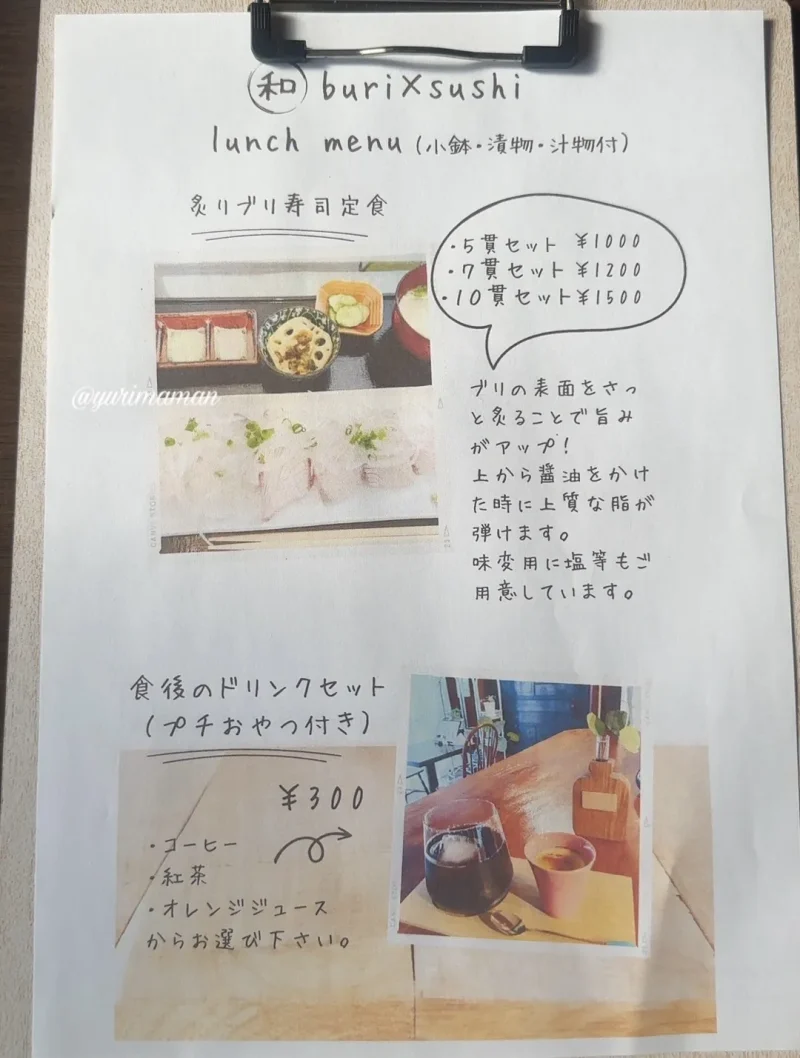 和 buri×sushi
lunch menu (小鉢・漬物・汁物付)
炙りブリ寿司定食
・5貫セット ¥1000
・7貫セット ¥1200
・10貫セット¥1500
@yurimaman
ブリの表面をさっ
と炙ることで旨み
がアップ!
上から醤油をかけ
た時に上質な脂が
弾けます。
味変用に塩等もご
用意しています。
食後のドリンクセット
(プチおやつ付き)
¥300
・コーヒー
・紅茶
・オレンジジュース
からお選び下さい。